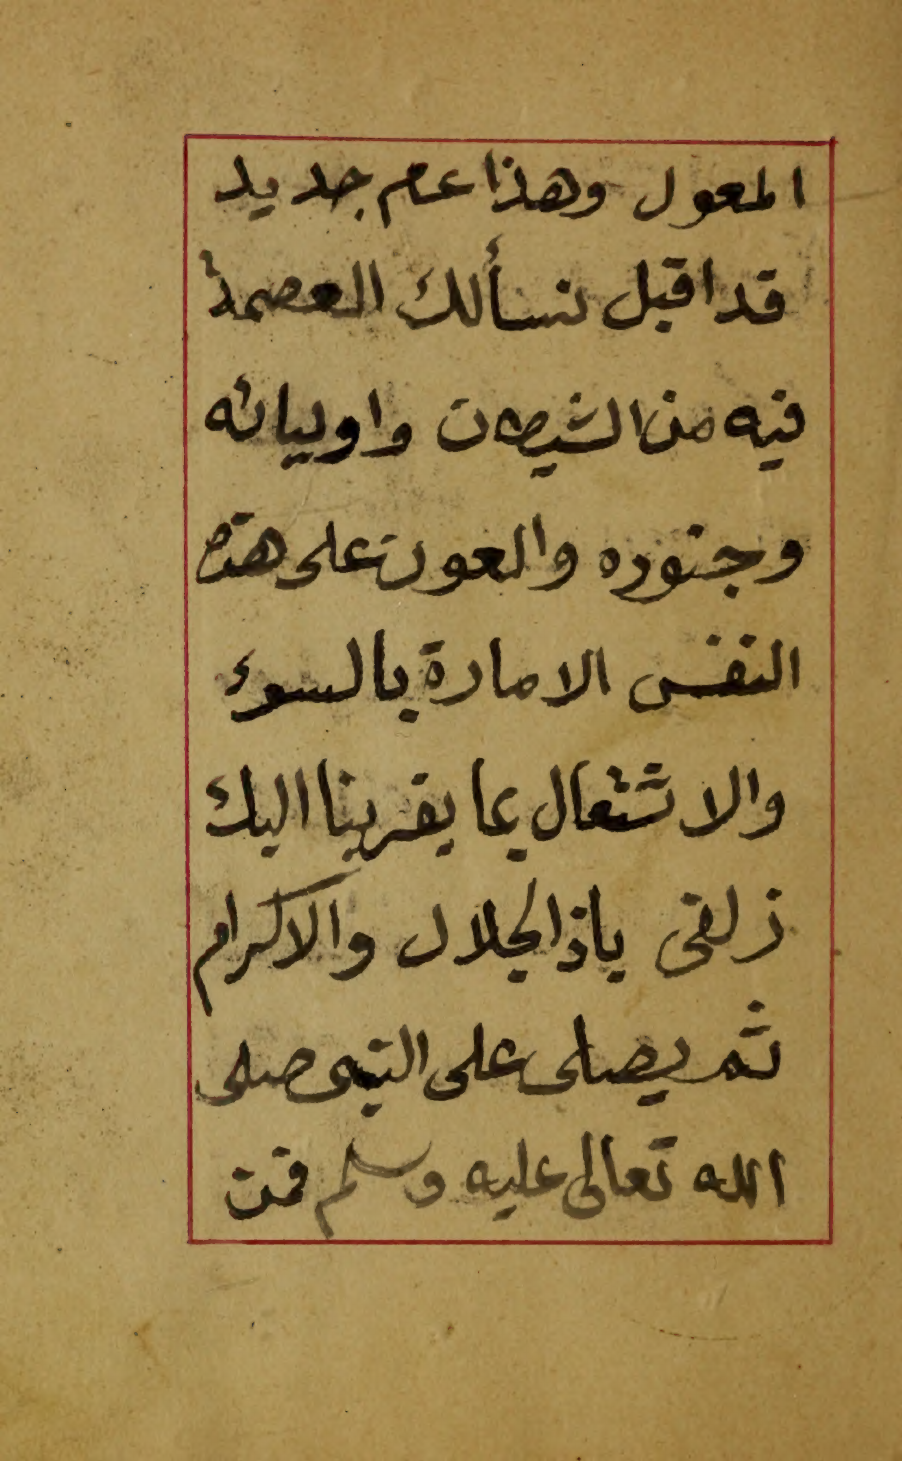 المعول وهذا عام جديد
قد اقبل نسألك العصمة
فيه من الشيطان واوليائه
وجنوده والعون على هذه
النفس الامارة بالسوء
والاشتغال بما يقربنا اليك
زلفى ياذالجلال والاكرام
ثم يصلى على النبى صلى
الله تعالى عليه وسلم فمن